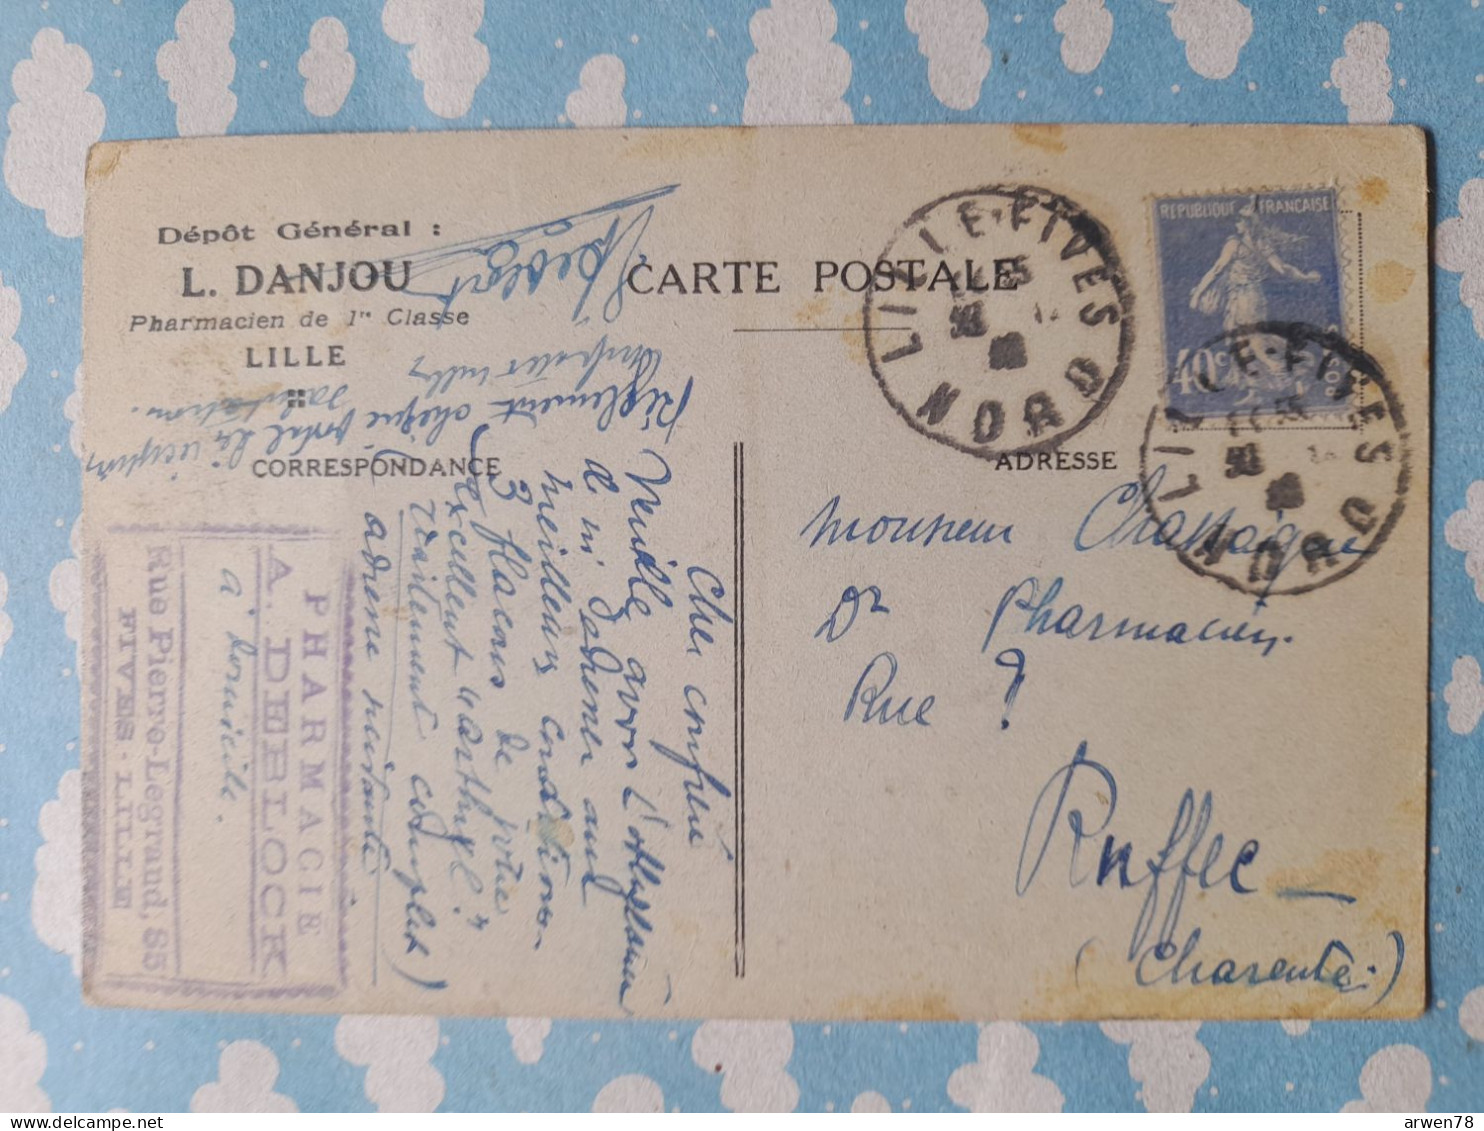 Dépôt Général :
L. DANJOU
Pharmacien de 1re Classe
LILLE
CARTE POSTALE
CORRESPONDANCE
ADRESSE
REPUBLIQUE FRANÇAISE
40c
LILLE-FIVES
NORD
LILLE-FIVES
NORD
Monsieur Chassaigne
Dr Pharmacien
Rue ?
Ruffec
(Charente)
Cher confrère
Veuille avoir l'obligeance
d' m'adresser aux
meilleurs conditions
3 flacons de votre
excellent
traitement complet)
adresse suivante
PHARMACIE
A. DEBLOCK
à domicile.
Rue Pierre-Legrand, 85
FIVES-LILLE
Règlement chèque postal
salutations.
arwen78
delcampe.net